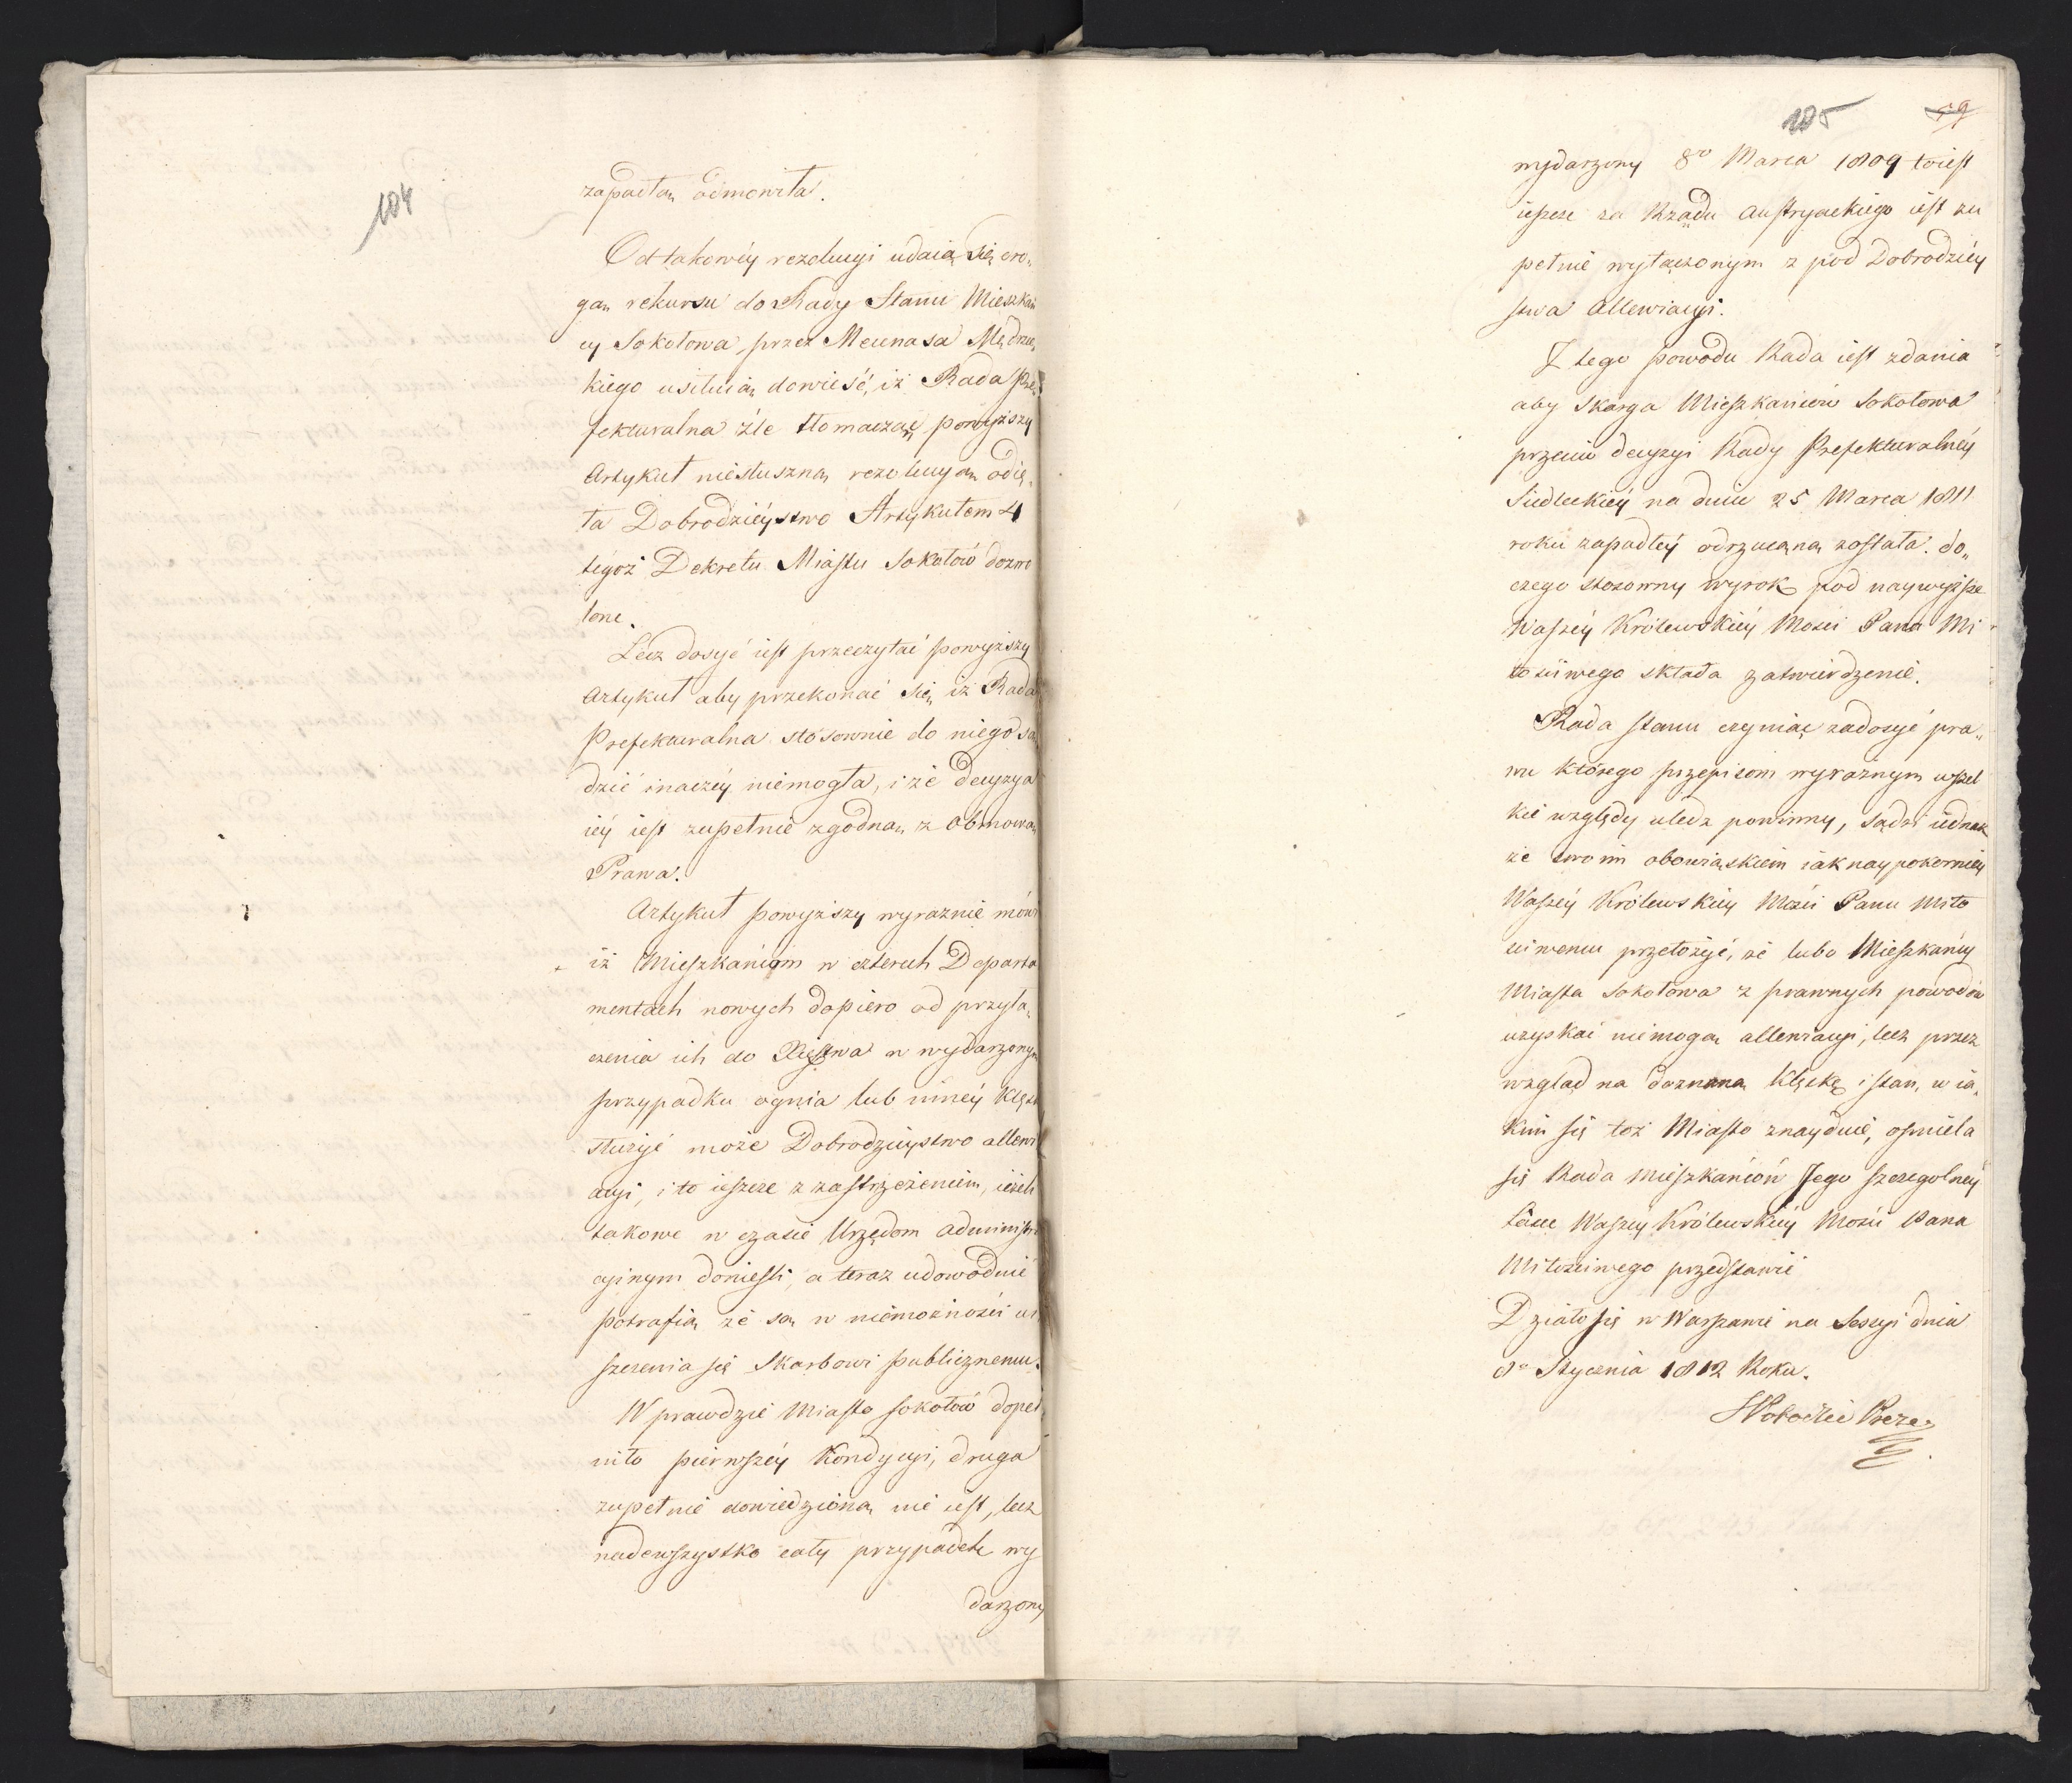 104
zapadłą odmówiła.
Od takowéy rezolucyi udaią się dro„
gą rekursu do Rady Stanu Mieszkań
cy Sokołowa, przez Mecenasa Mędrzec„
kiego usiłuią dowieść, iż Rada Pre„
fekturalna źle tłomacząc powyższy
Artykuł niesłuszną rezolucyą odię„
ła Dobrodzieystwo Artykułem 4
tégoż Dekretu Miastu Sokołów dozwo
lone.
Lecz dosyć iest przeczytać powyższy
Artykuł aby przekonać się, iż Rada
Prefekturalna stosownie do niego są„
dzić inaczéy niemogła, i że decyzya
iéy iest zupełnie zgodną z obmową
Prawa.
Artykuł powyższy wyraznie mówi
iż Mieszkańcom w czterech Departa
mentach nowych dopiero od przyłą„
czenia ich do Xięstwa w wydarzonym
przypadku ognia lub innéy klęski
służyć może Dobrodzieystwo allewi
acyi, i to ieszcze z zastrzeżeniem, ieżeli
takowe w czasie Urzędom administra
cyinym doniesli, a teraz udowodnić
potrafią że są w niemożności ui„
szczenia się Skarbowi publicznemu.
W prawdzie Miasto Sokołów dopeł„
niło pierwszéy kondycyi, druga
zupełnie dowiedzioną nie iest, lecz
nadewszystko cały przypadek wy
darzony
105
59
wydarzony 8go Marca 1809 toiest
ieszcze za Rządu Austryackiego iest zu
pełnie wyłączonym z pod Dobrodziéy
stwa Allewiacyi.
Z tego powodu Rada iest zdania
aby Skarga Mieszkańców Sokołowa
przeciw decyzyi Rady Prefekturalnéy
Siedleckiéy na dniu 25 Marca 1811
roku zapadłéy odrzuconą została. do„
czego stosowny wyrok pod naywyższe
Waszéy Królewskiéy Mości Pana Mi
łościwego składa zatwierdzenie.
Rada Stanu czyniąc zadosyć pra„
wu którego przepisom wyraźnym wszel
kie względy uledz powinny, sądzi iednak
że swoim obowiąskiem iak naypokorniéy
Waszéy Królewskiéy Mości Panu Miło
ściwemu przełożyć, że lubo Mieszkańcy
Miasta Sokołowa z prawnych powodów
uzyskać niemogą allewiacyi, lecz przez
wzgląd na doznaną klęskę i stan, w ia„
kim się toż Miasto znayduie, ośmiela
się Rada mieszkańców Jego szczególnéy
Łasce Waszéy Królewskiéy Mości Pana
Miłościwego przedstawić
Działo się w Warszawie na Sessyi dnia
8o Stycznia 1812 Roku.
Prezes